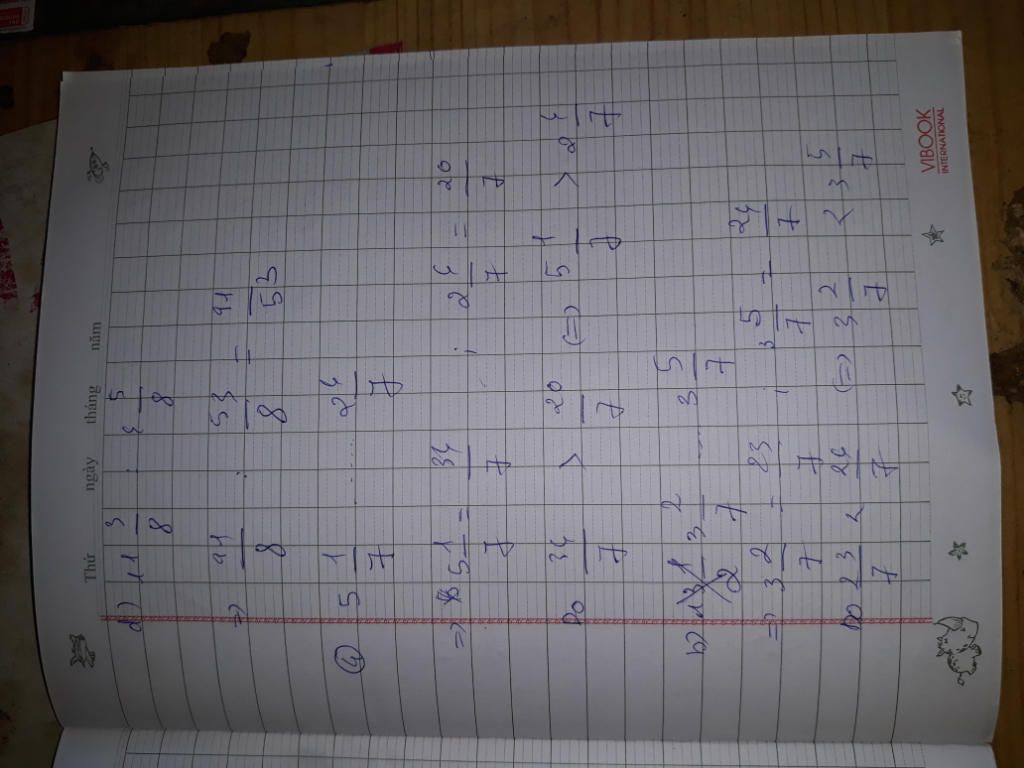 Thứ ngày tháng năm
d) 11 3/8 : 6 5/8
=> 91/8 : 53/8 = 91/53
④ 5 1/7 ..... 2 6/7
=> 5 1/7 = 36/7 ; 2 6/7 = 20/7
Do 36/7 > 20/7 (=) 5 1/7 > 2 6/7
b) 3 2/7 .... 3 5/7
=> 3 2/7 = 23/7 ; 3 5/7 = 26/7
Do 23/7 < 26/7 (=) 3 2/7 < 3 5/7
VIBOOK
INTERNATIONAL